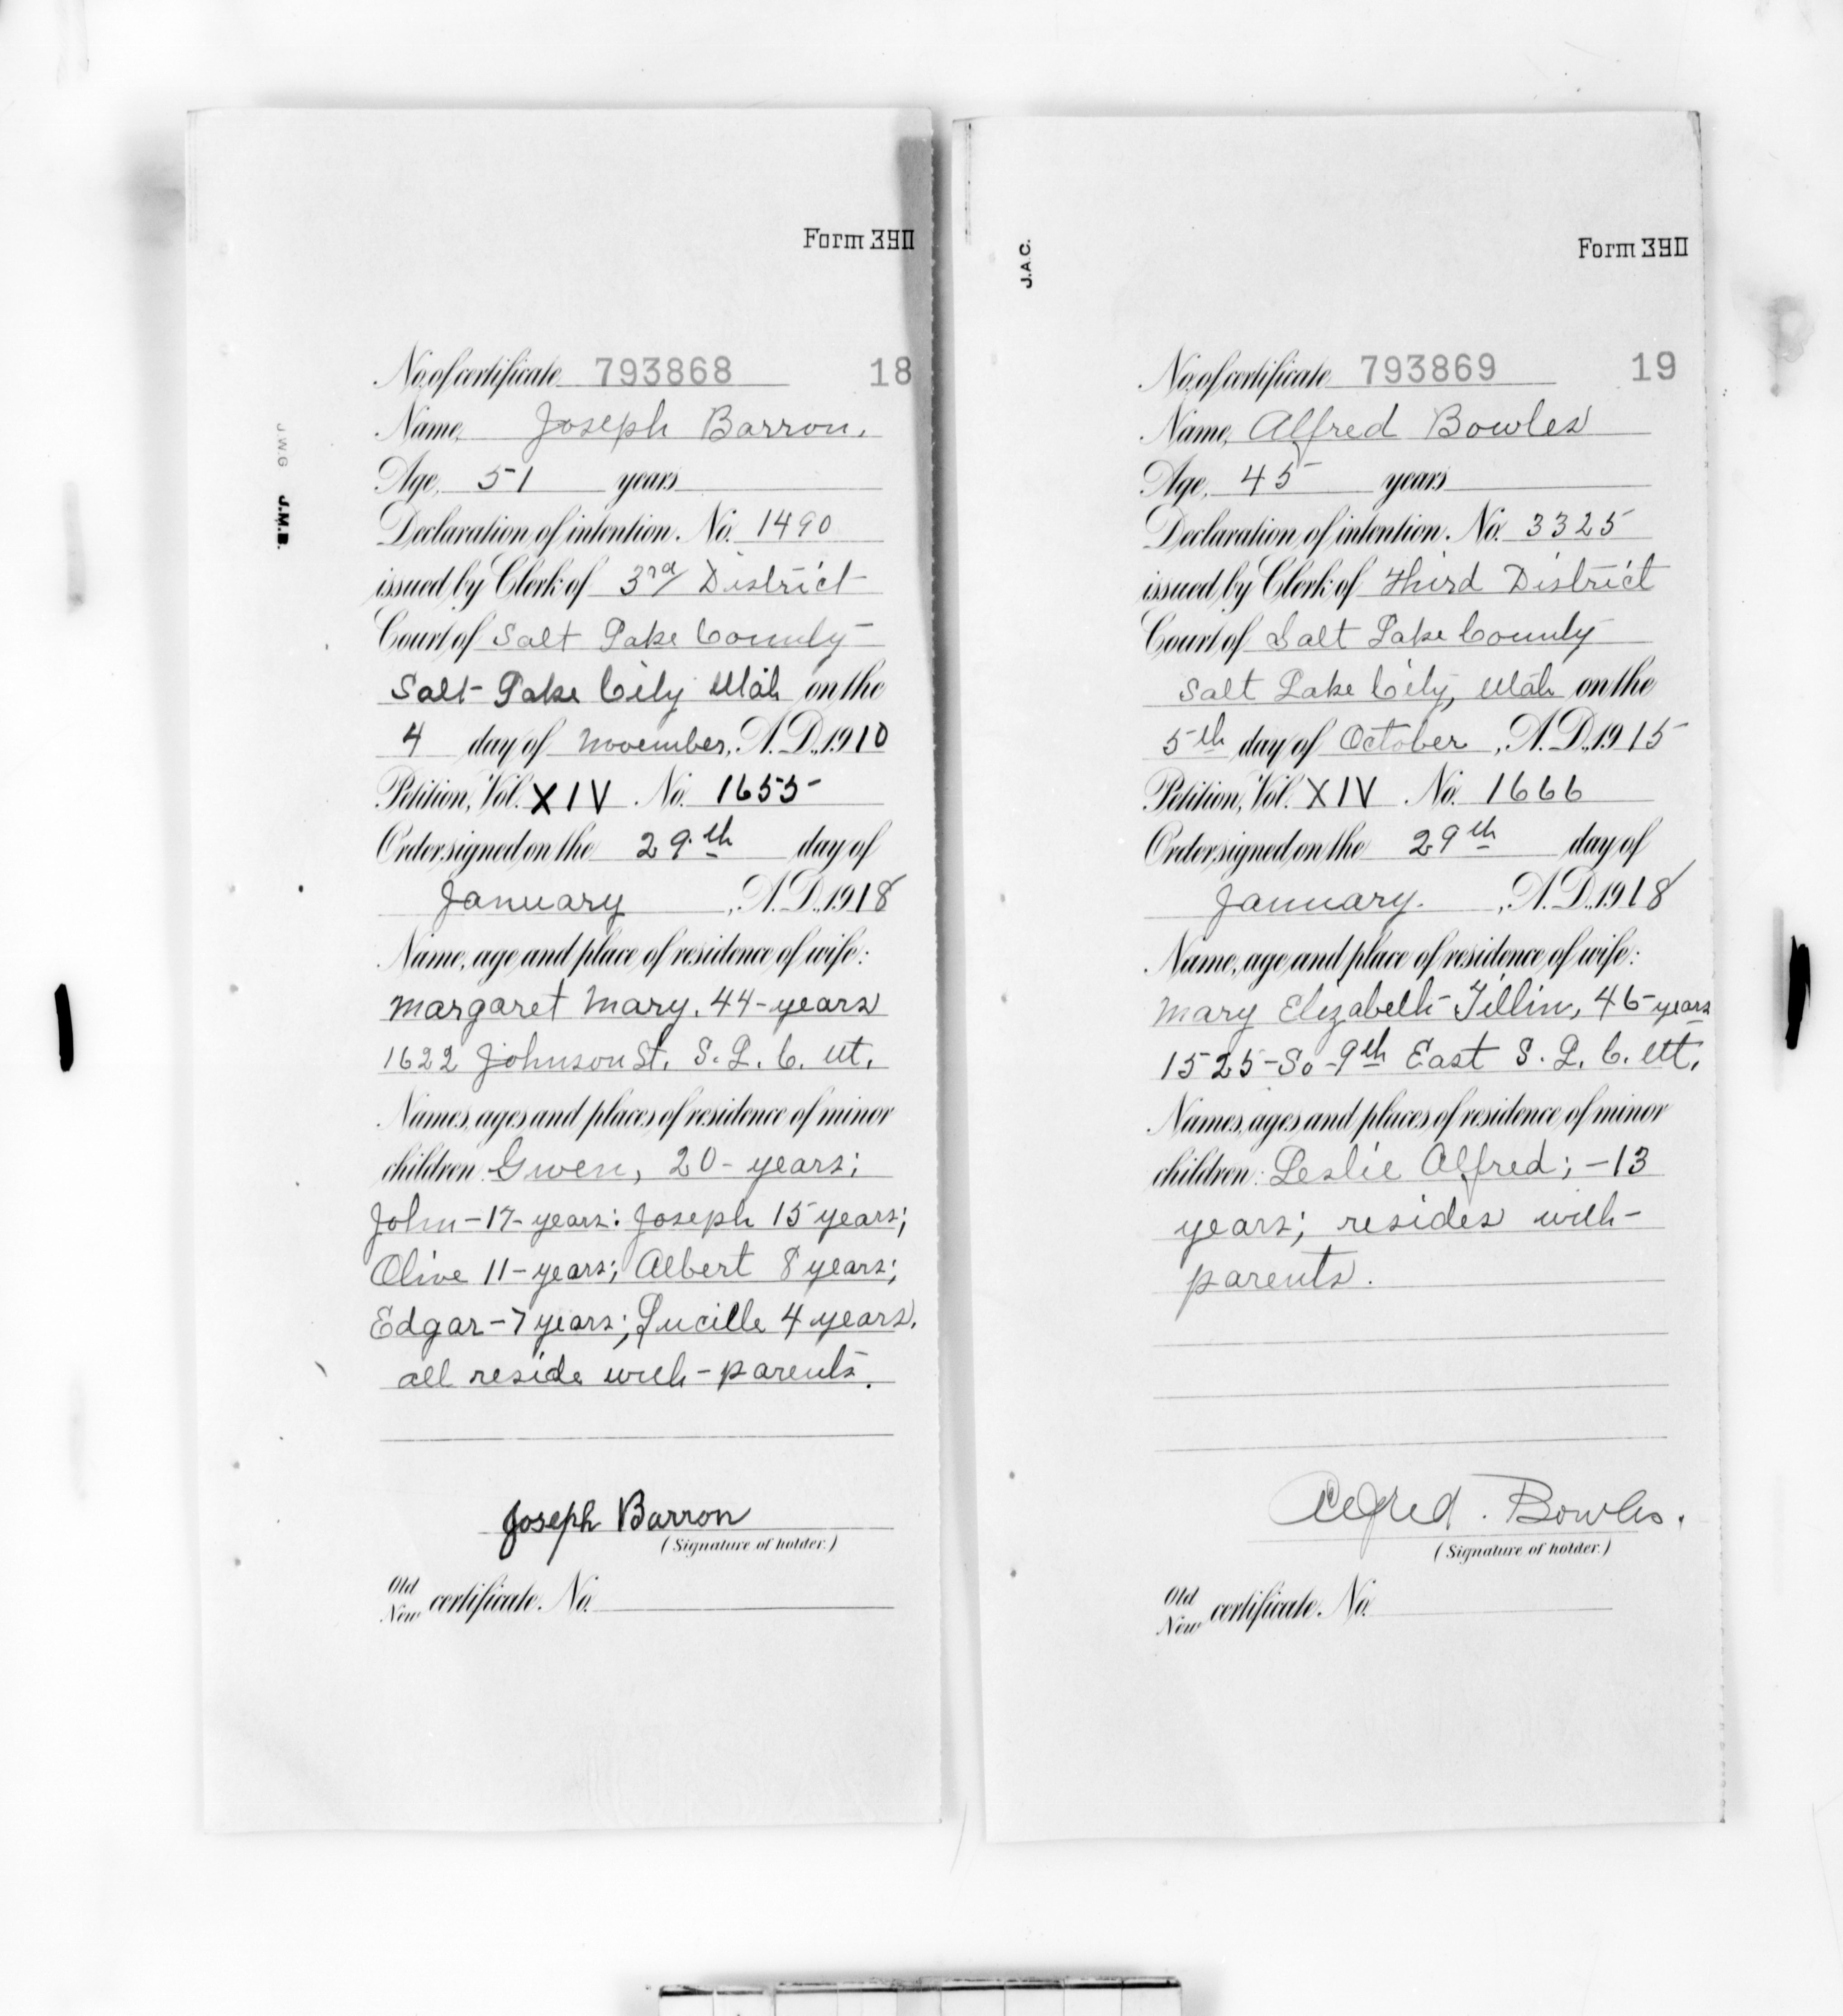 Form 390
No. of certificate 793868 18
Name, Joseph Barron.
Age, 51 years
Declaration of intention. No. 1490
issued by Clerk of 3rd District
Court of Salt Lake County
Salt Lake City Utah on the
4 day of November, A.D., 1910
Petition, Vol. XIV No. 1655
Order signed on the 29th day of
January, A.D., 1918
Name, age and place of residence of wife:
Margaret Mary, 44-years
1622 Johnson St. S. L. C. Ut.
Names, ages and places of residence of minor
children: Gwen, 20-years;
John-17-years: Joseph 15 years;
Olive 11-years; Albert 8 years;
Edgar-7 years; Lucille 4 years.
all reside with-parents.
Joseph Barron
(Signature of holder.)
Old
New certificate. No.
J.W.G J.M.B.
Form 390
J.A.C.
No. of certificate 793869 19
Name, Alfred Bowles
Age, 45 years
Declaration of intention. No. 3325
issued by Clerk of Third District
Court of Salt Lake County
Salt Lake City, Utah on the
5th day of October, A.D., 1915
Petition, Vol. XIV No. 1666
Order signed on the 29th day of
January., A.D., 1918
Name, age and place of residence of wife:
Mary Elizabeth Tillin, 46-years
1525-So-9th East S. L. C. Ut.
Names, ages and places of residence of minor
children: Leslie Alfred; -13
years; resides with-
parents.
Alfred. Bowles.
(Signature of holder.)
Old
New certificate. No.